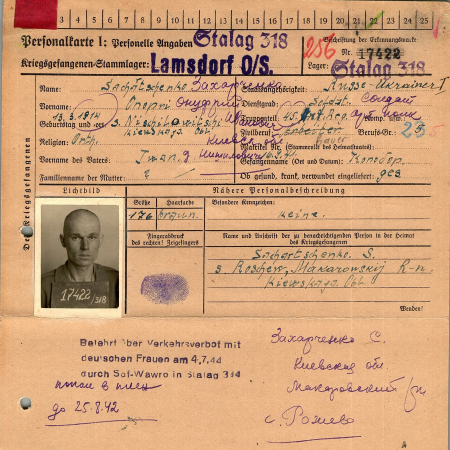 1 2 3 4 5 6 7 8 9 10 11 12 13 14 15 16 17 18 19 20 21 22 23 24 25
Personalkarte I: Personelle Angaben Stalag 318
Beschriftung der Erkennungsmarke
256 Nr. 17422
Kriegsgefangenen-Stammlager: Lamsdorf O/S.
Lager: Stalag 318
Des Kriegsgefangenen
Name: Sachartschenko Захарченко
Vorname: Onopri Онуфрий
Geburtstag und -ort
Kiewskaja Obl.
Religion: Orth. Киевск обл
Vorname des Vaters: Iwan
Familienname der Mutter: ?
Staatsangehörigkeit: Russe-Ukrainer
Dienstgrad: Soldat Солдат
Truppenteil: 45. Art. Reg. арт полк
Zivilberuf: Berufs-Gr.
Matrikel Nr. (Stammrolle des Heimatstaates):
Gefangennahme (Ort und Datum):
Ob gesund, krank, verwundet eingeliefert: ges
Lichtbild
Nähere Personalbeschreibung
Größe Haarfarbe Besondere Kennzeichen:
176 braun. Keine.
Fingerabdruck
des rechten! Zeigefingers
Name und Anschrift der zu benachrichtigenden Person in der Heimat
des Kriegsgefangenen
Sachartschenko S.
Makarowskij R-n.
Kiewskaja Obl
Wenden!
17422/318
Belehrt über Verkehrsverbot mit
deutschen Frauen am 4.7.44
durch Sdf-Wawro in Stalag 344
попал в плен
до 25.8.42
Захарченко С.
Киевская обл.
Макаровский р/н
с. Рожево